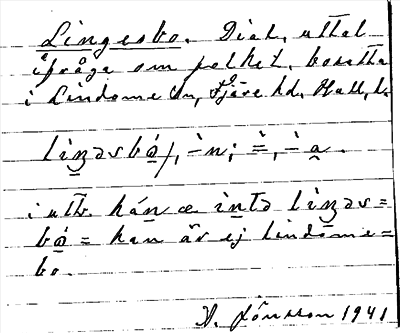 Lingesbo. Dial. uttal
ifråga om folket, bosatta
i Lindome sn, Fjäre hd, Hall. l.
liŋəsbó/, -n; =, -a.
i uttr. hán æ intə liŋəs=
bó = han är ej lindome=
bo.
A. Jönsson 1941